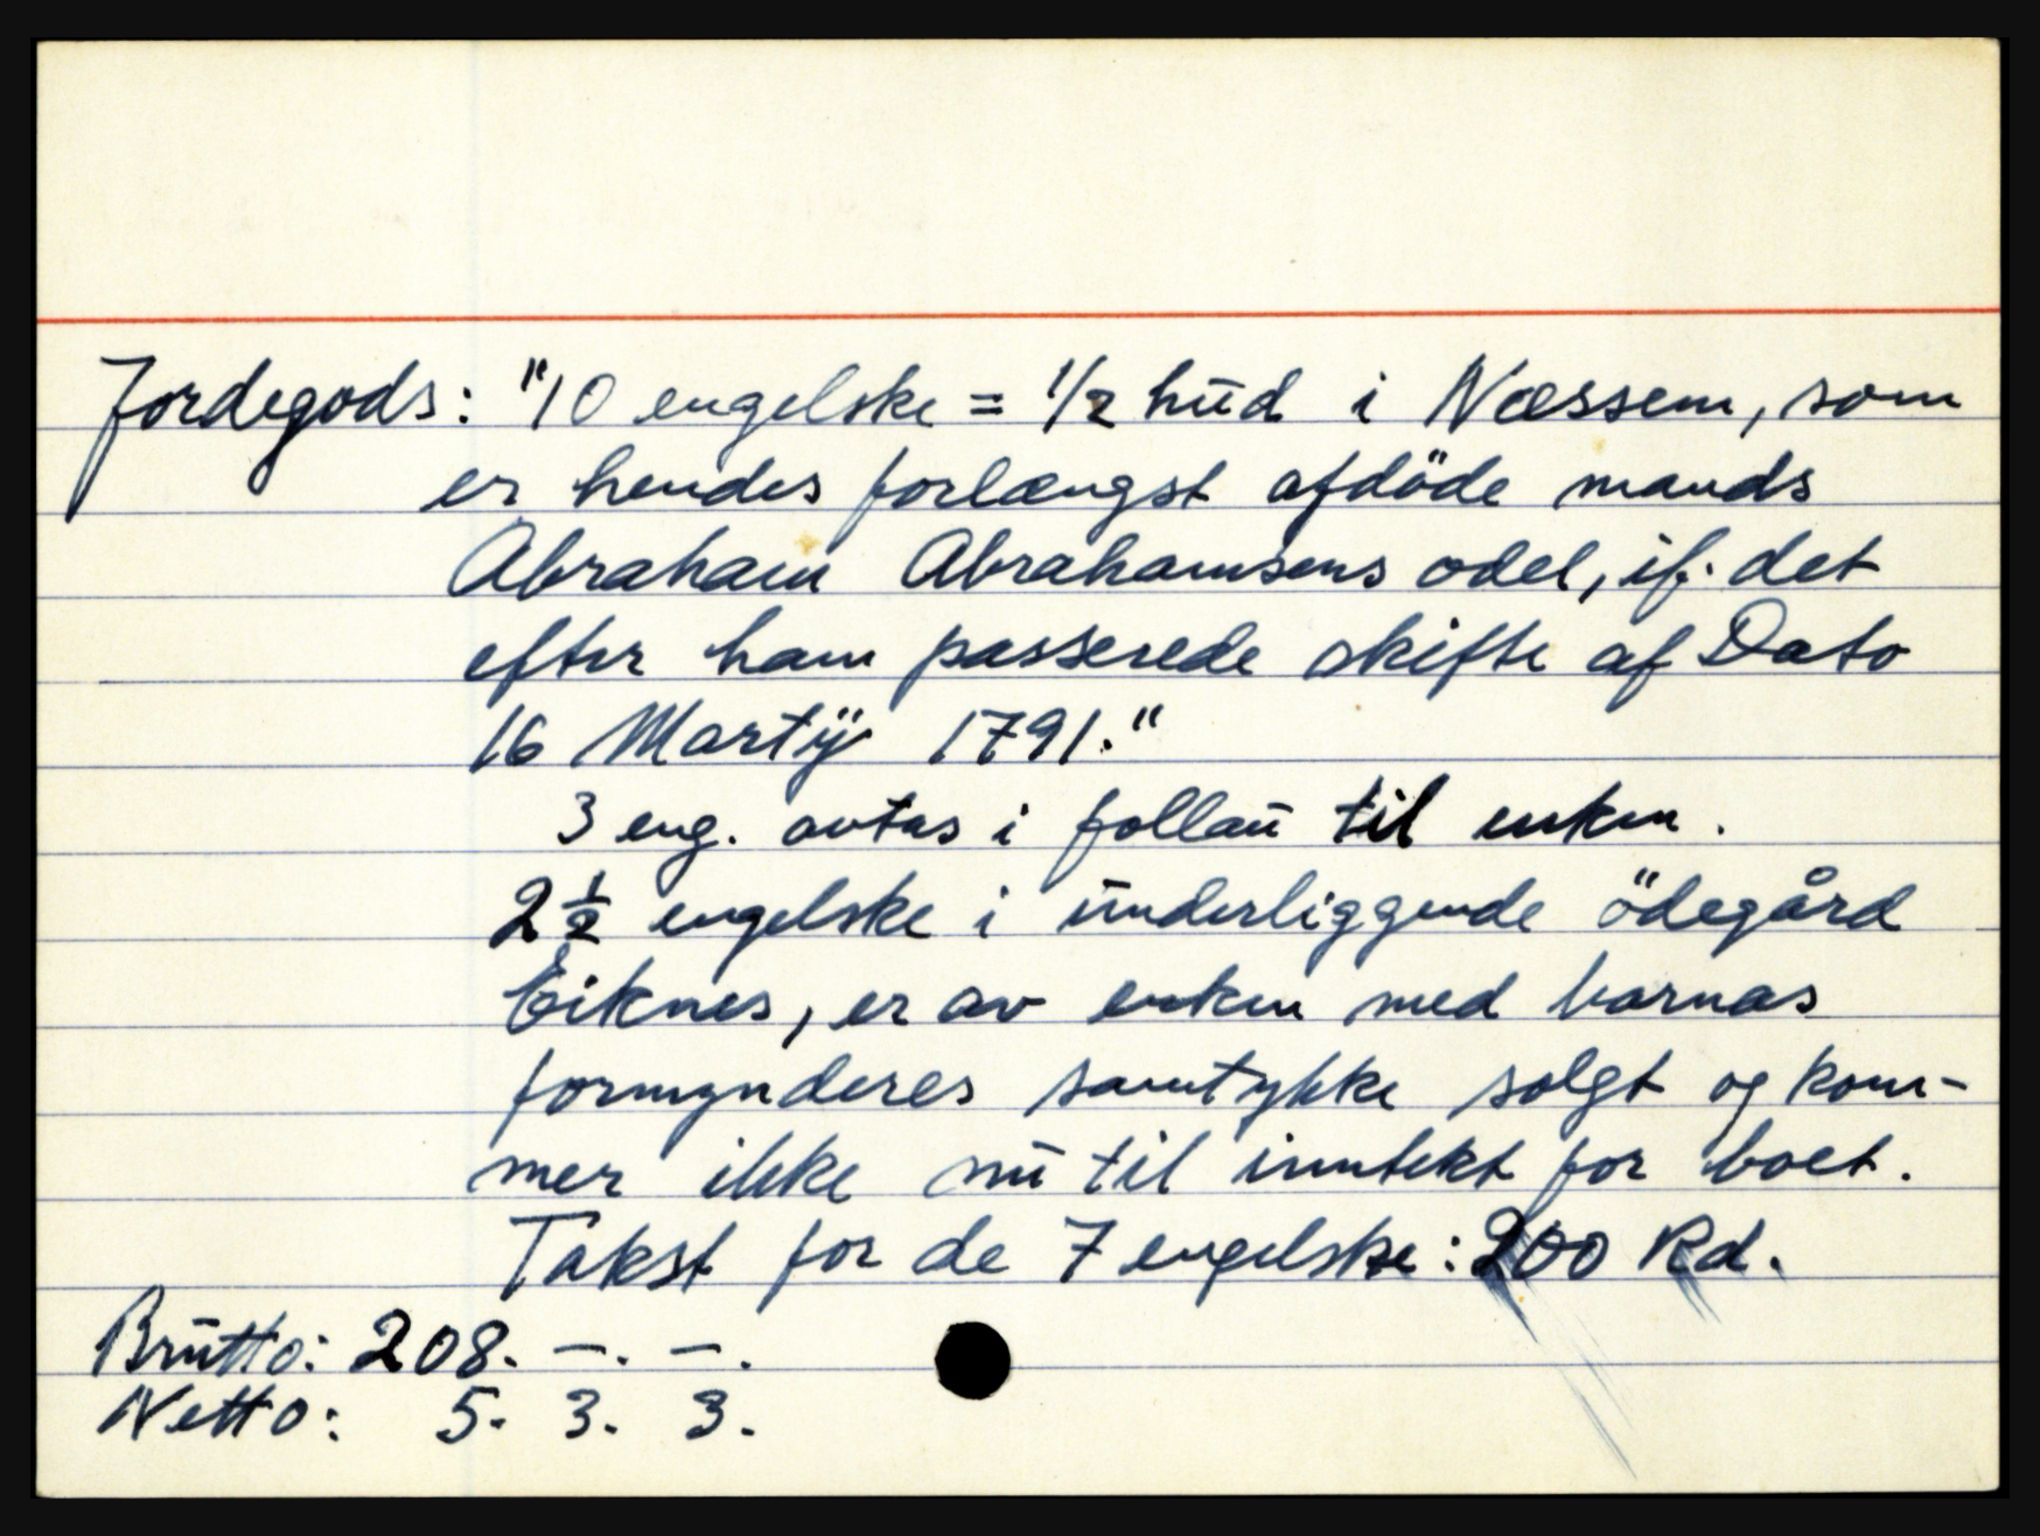 Jordegods: "10 engelske = 1/2 hud i Næssem, som
er hendes forlængst afdöde mands
Abraham Abrahamsens odel, if. det
efter ham passerede skifte af Dato
16 Martÿ 1791."
3 eng. avtas i follau til enken.
2 1/2 engelske i underliggende ödegård
Eiknes, er av enken med barnas
formynderes samtykke solgt og kom-
mer ikke nu til inntekt for boet.
Takst for de 7 engelske: 200 Rd.
Brutto: 208. -. -.
Netto: 5. 3. 3.